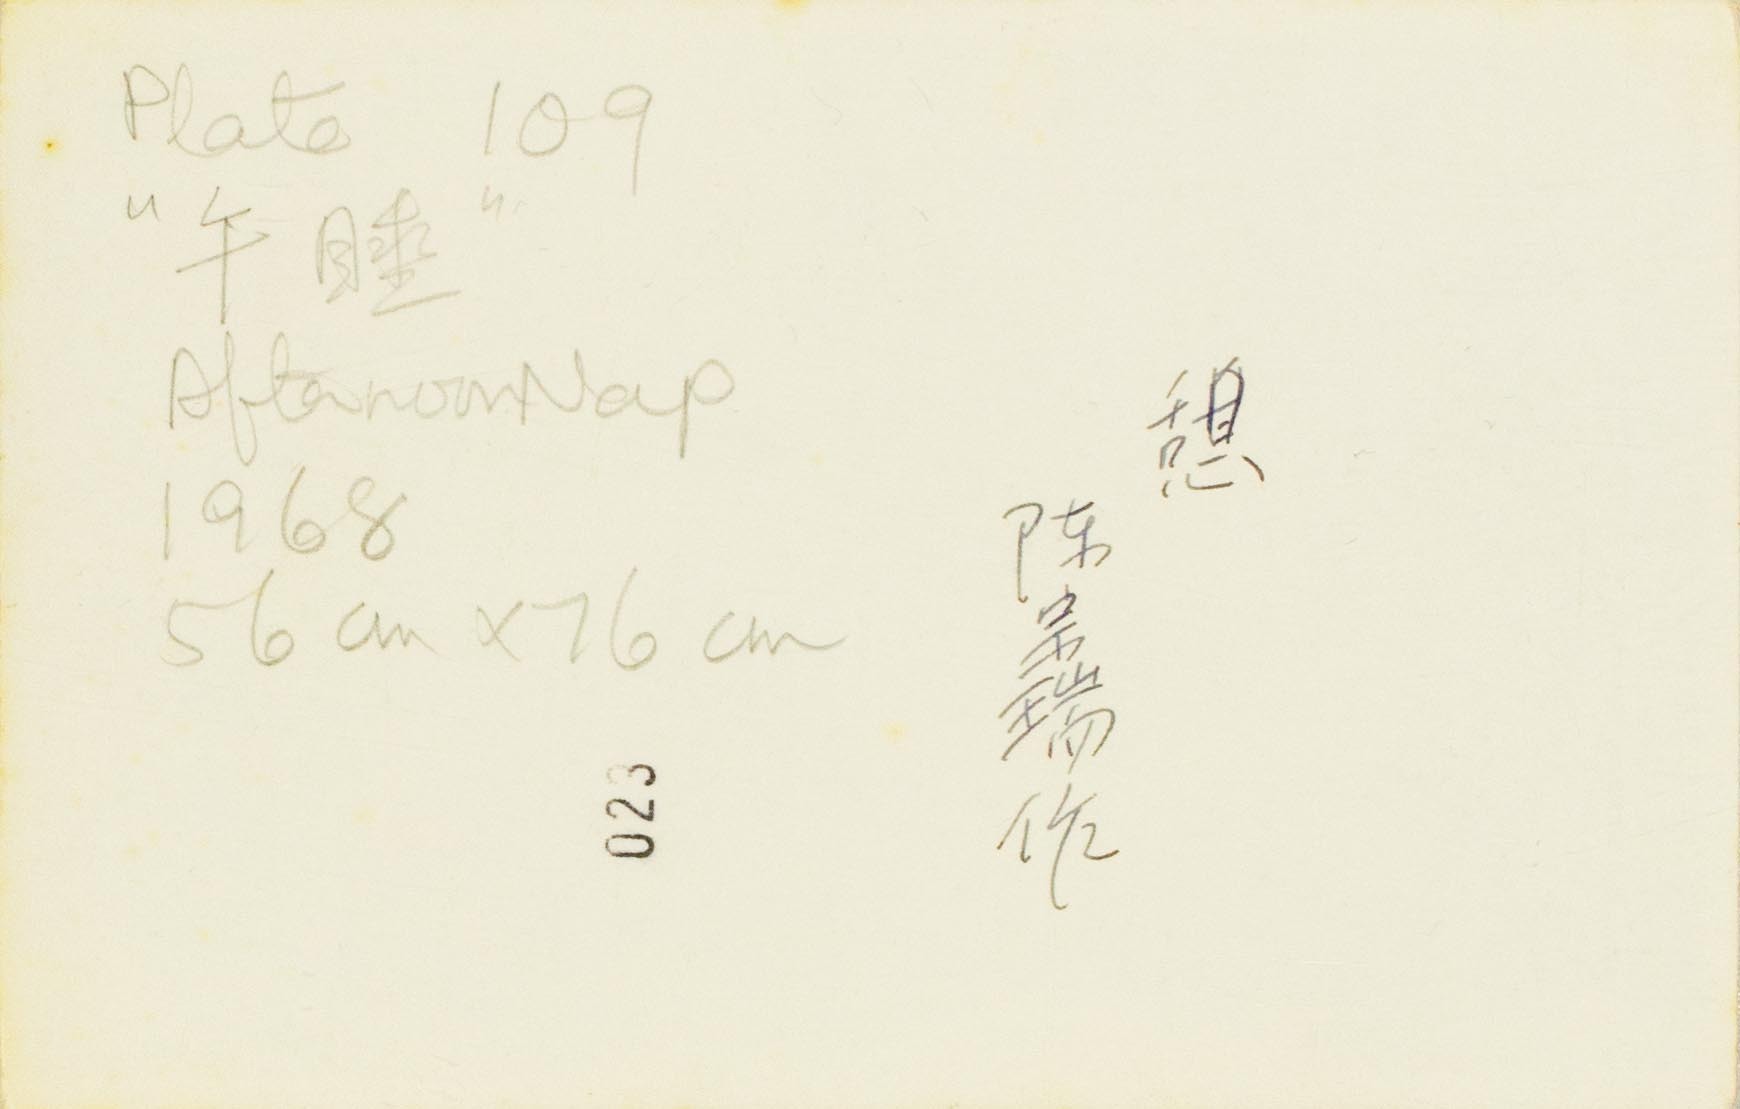 Plate 109
"午睡"
Afternoon Nap
1968
56 cm x 76 cm
023
憩
陈宗瑞作